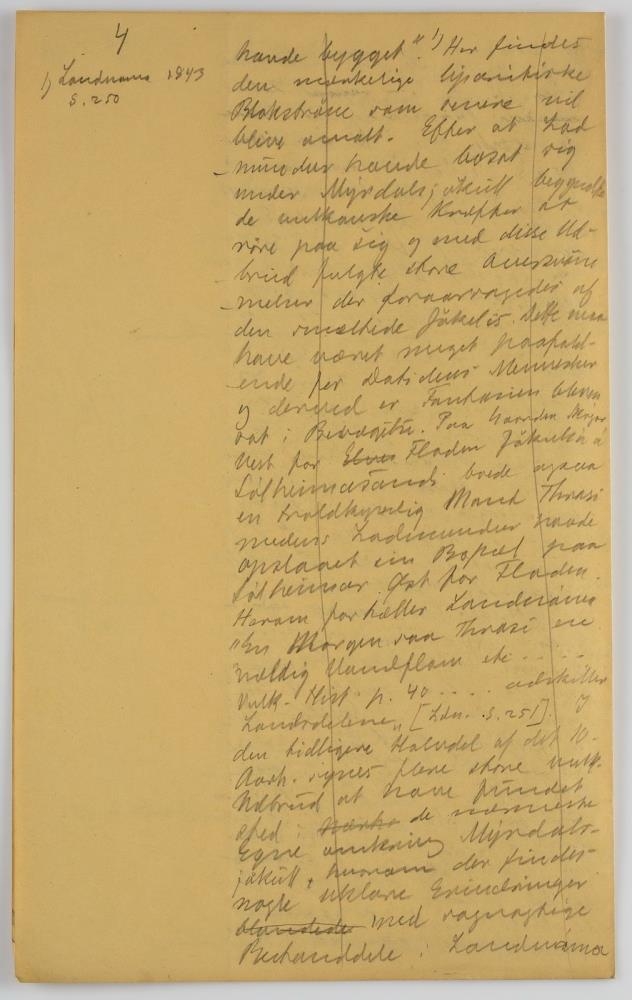 4
1) Landnama 1843
S. 250
havde bygget".1) Her findes
den mærkelige liparitiske
Blokstrøm som senere vil
blive omtalt. Efter at Lod
mundur havde bosat sig
under Mýrdalsjökull begyndte
de vulkanske Kræfter at
røre paa sig og med disse Ud-
brud fulgte store Oversvøm
melser der foraarsagedes af
den smeltede Jökelis. Dette maa
have været meget paafald-
ende for Datidens Mennesker
og derved er Fantasien bleven
sat i Bevægelse. Paa
Vest for Elven Floden Jökulsá á
Sólheimasandi boede ogsaa
en troldkyndig Mand Thrasi
medens Lodmundur havde
opslaaet sin Bopæl paa
Sólheimar Øst for Floden.
Herom fortæller Landnáma
"En Morgen saa Thrasi en
vældig Vandflom etc .....
Vulk. Hist. p. 40 .... adskiller
Landsdelene" [Ldn. S. 251]. I
den tidligere Halvdel af det 10.
Aarh. synes flere store vulk.
Udbrud at have fundet
sted i de nærmeste
Egne omkring Mýrdals-
jökull, hvorom der findes
nogle uklare Erindringer
blandede med sagnagtige
Bestanddele i Landnáma